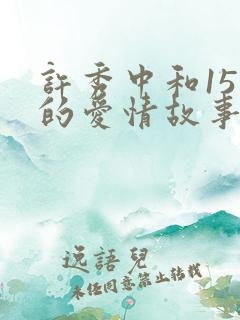 許秀中和15
的愛情故事
逸語兒
未经同意禁止转载